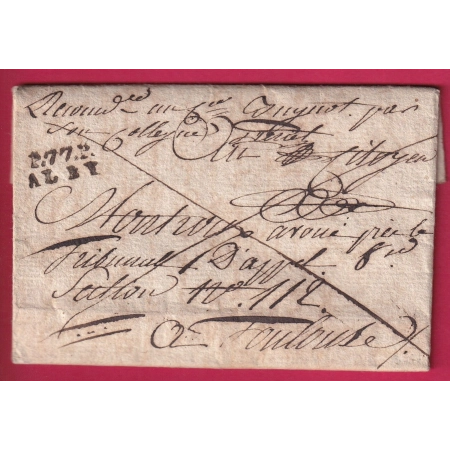 Recomdée au Cen Guignot par
son Collegue
Au Citoyen
P.77.P.
ALBY
avoué près le
Tribunal D'appel
Section No. 112
a Toulouse